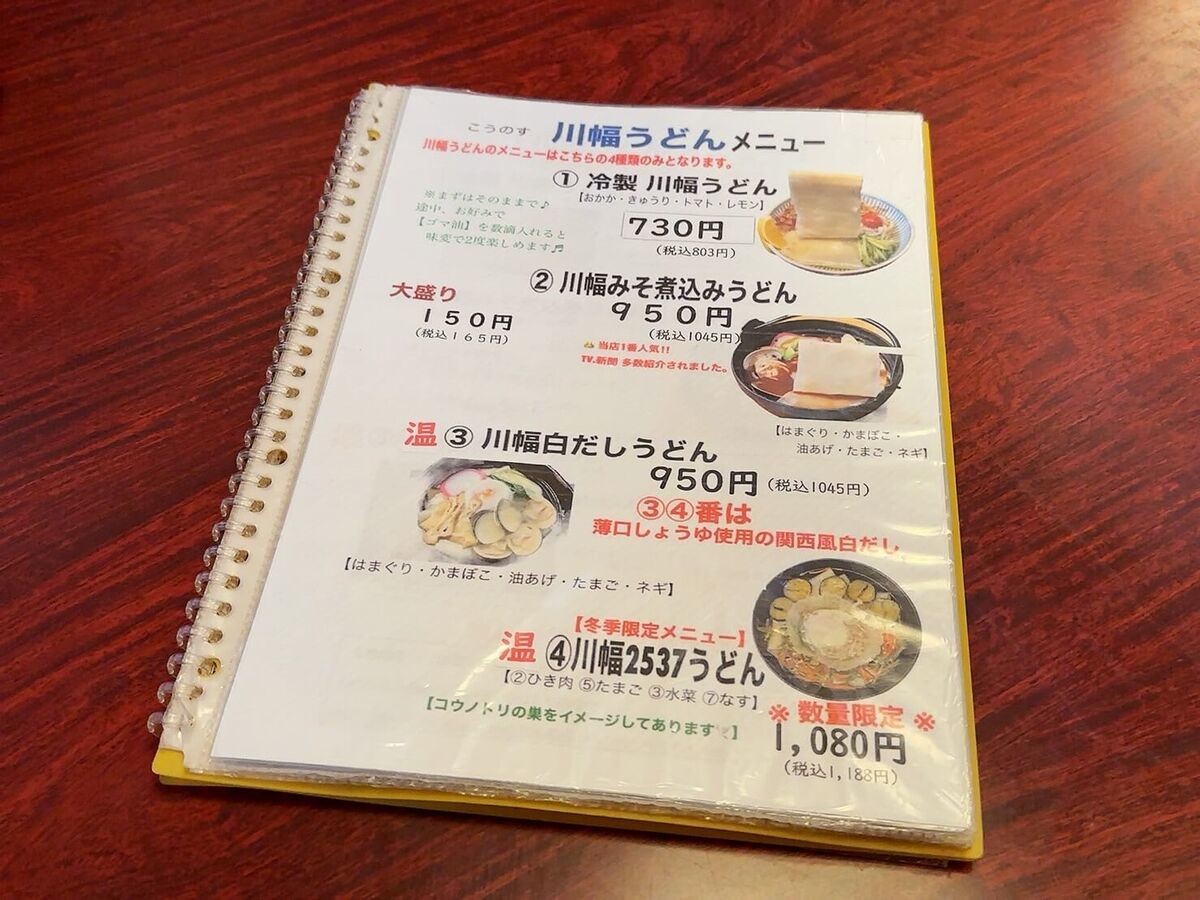 こうのす 川幅うどんメニュー
川幅うどんのメニューはこちらの4種類のみとなります。
① 冷製 川幅うどん
【おかか・きゅうり・トマト・レモン】
730円
(税込803円)
※まずはそのままで♪
途中、お好みで
【ゴマ油】を数滴入れると
味変で2度楽しめます♬
② 川幅みそ煮込みうどん
950円
(税込1045円)
大盛り
150円
(税込165円)
当店1番人気!!
TV.新聞 多数紹介されました。
【はまぐり・かまぼこ・
油あげ・たまご・ネギ】
温 ③ 川幅白だしうどん
950円 (税込1045円)
③④番は
薄口しょうゆ使用の関西風白だし
【はまぐり・かまぼこ・油あげ・たまご・ネギ】
【冬季限定メニュー】
温 ④川幅2537うどん
【②ひき肉 ⑤たまご ③水菜 ⑦なす】
【コウノトリの巣をイメージしてあります♡】
※ 数量限定 ※
1,080円
(税込1,188円)